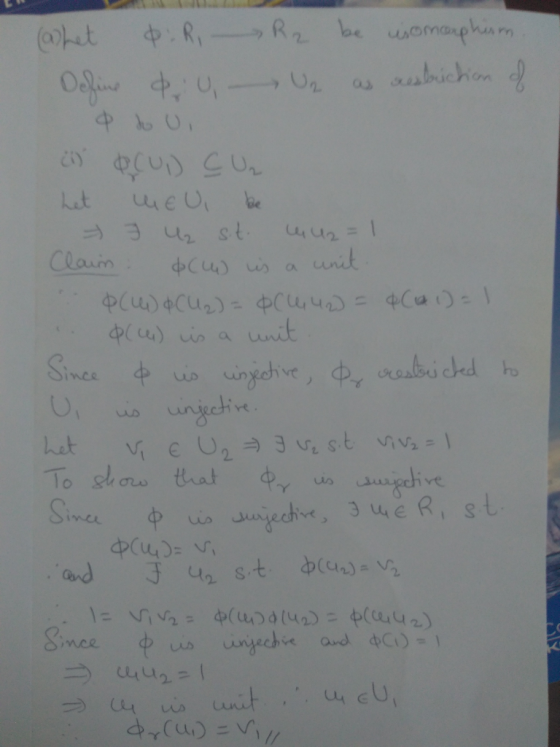 (a) Let ϕ : R₁ ⟶ R₂ be isomorphism.
Define ϕᵣ : U₁ ⟶ U₂ as restriction of
ϕ to U₁
(i) ϕᵣ(U₁) ⊆ U₂
Let u₁ ∈ U₁ be
⇒ ∃ u₂ s.t. u₁u₂ = 1
Claim : ϕ(u₁) is a unit
∵ ϕ(u₁)ϕ(u₂) = ϕ(u₁u₂) = ϕ(1) = 1
∴ ϕ(u₁) is a unit
Since ϕ is injective, ϕᵣ restricted to
U₁ is injective.
Let v₁ ∈ U₂ ⇒ ∃ v₂ s.t. v₁v₂ = 1
To show that ϕᵣ is surjective
Since ϕ is surjective, ∃ u₁ ∈ R₁ s.t.
ϕ(u₁) = v₁
and ∃ u₂ s.t. ϕ(u₂) = v₂
∴ 1 = v₁v₂ = ϕ(u₁)ϕ(u₂) = ϕ(u₁u₂)
Since ϕ is injective and ϕ(1) = 1
⇒ u₁u₂ = 1
⇒ u₁ is unit ∴ u₁ ∈ U₁
∴ ϕᵣ(u₁) = v₁ //